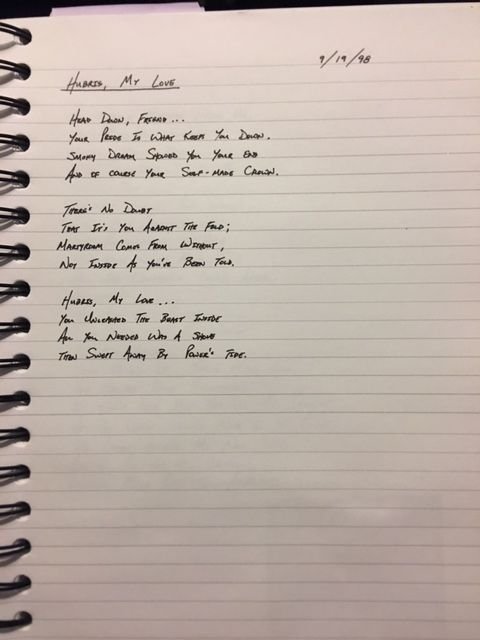 9/19/98
Hubris, My Love
Head Down, Friend...
Your Pride Is What Keeps You Down.
Smoky Dream Showed You Your End
And of Course Your Self-Made Crown.
There's No Doubt
That It's You Against The Fold;
Martyrdom Comes From Without,
Not Inside As You've Been Told.
Hubris, My Love...
You Unleashed The Beast Inside
All You Needed Was A Shove
Then Swept Away By Power's Tide.